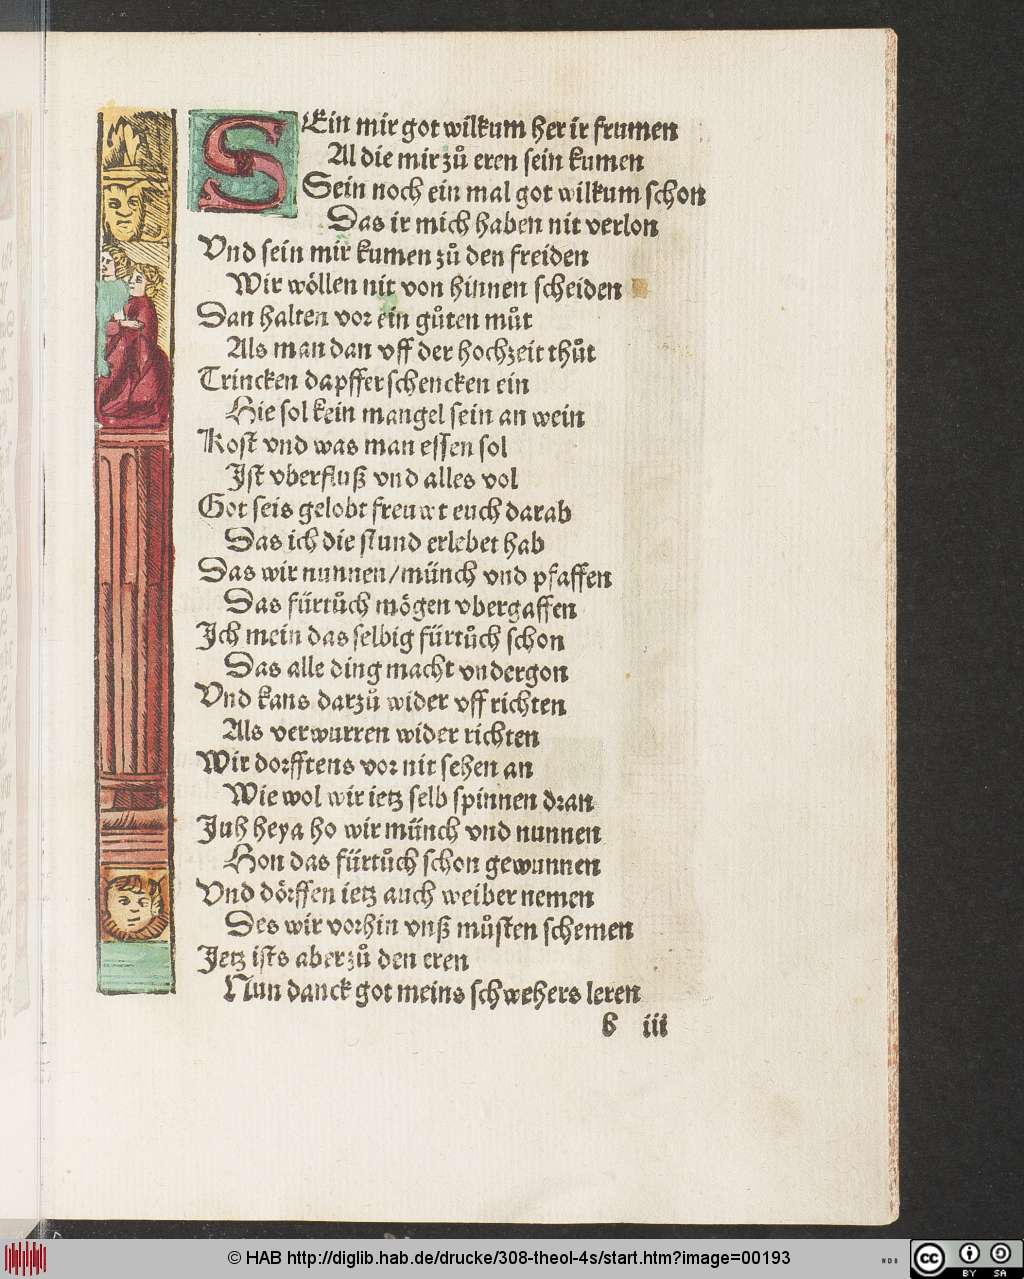 SEin mir got wilkum her ir frumen
Al die mir zů eren sein kumen
Sein noch ein mal got wilkum schon
Das ir mich haben nit verlon
Vnd sein mir kumen zů den freiden
Wir wöllen nit von hinnen scheiden
Dan halten vor ein gůten můt
Als man dan vff der hochzeit thůt
Trincken dapffer schencken ein
Hie sol kein mangel sein an wein
Kost vnd was man essen sol
Ist vberfluß vnd alles vol
Got seis gelobt freuwt euch darab
Das ich die stund erlebet hab
Das wir nunnen/münch vnd pfaffen
Das fürtůch mögen vbergaffen
Ich mein das selbig fürtůch schon
Das alle ding macht vndergon
Vnd kans darzů wider vff richten
Als verwurren wider richten
Wir dorfftens vor nit sehen an
Wie wol wir ietz selb spinnen dran
Juh heya ho wir münch vnd nunnen
Hon das fürtůch schon gewunnen
Vnd dörffen ietz auch weiber nemen
Des wir vorhin vnß můsten schemen
Jetz ists aber zů den eren
Nun danck got meins schwehers leren
b iii
© HAB http://diglib.hab.de/drucke/308-theol-4s/start.htm?image=00193
WDB
cc BY SA